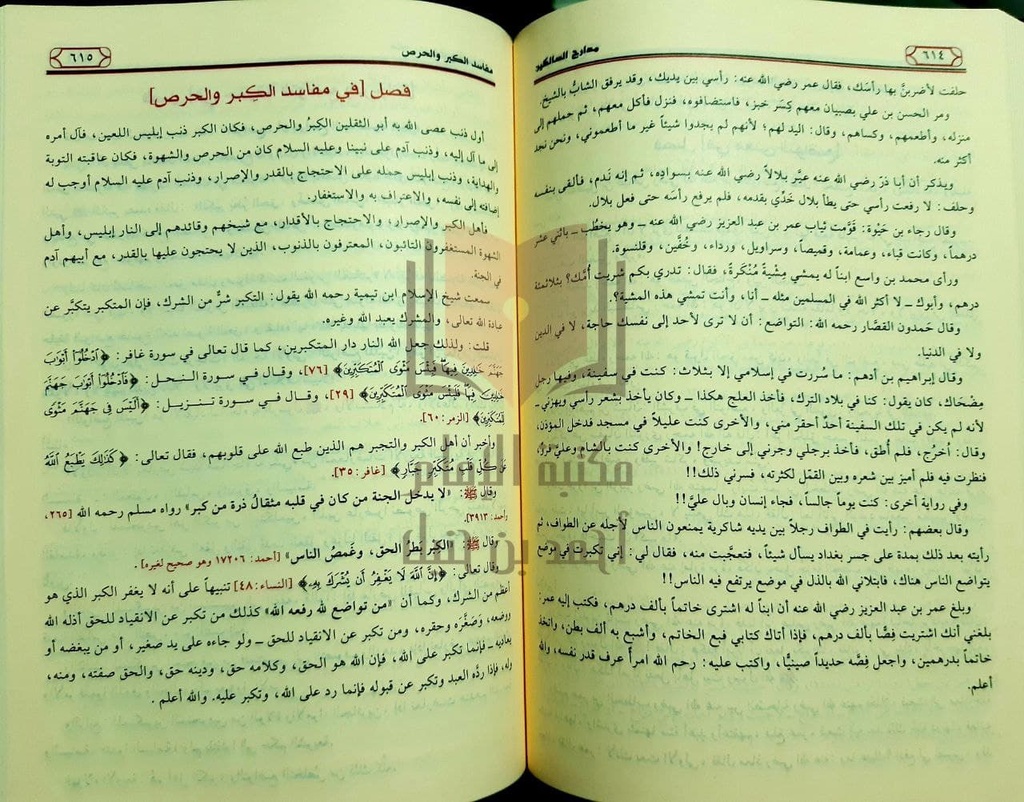 ٦١٤
مدارج السالكين
حلفت لأضربنَّ بها رأسك، فقال عمر رضي الله عنه: رأسي بين يديك، وقد يرفق الشابُّ بالشيخ.
ومر الحسن بن علي بصبيان معهم كِسَر خبز، فاستضافوه، فنزل فأكل معهم، ثم حملهم إلى
منزله، وأطعمهم، وكساهم، وقال: اليد لهم؛ لأنهم لم يجدوا شيئاً غير ما أطعموني، ونحن نجد
أكثر منه.
ويذكر أن أبا ذرّ رضي الله عنه عيَّر بلالاً رضي الله عنه بسواده، ثم إنه نَدم، فألقى بنفسه
وحلف: لا رفعت رأسي حتى يطأ بلال خَدِّي بقدمه، فلم يرفع رأسَه حتى فعل بلال.
وقال رجاء بن حَيْوة: قوَّمت ثياب عمر بن عبد العزيز رضي الله عنه ــ وهو يخطُب ــ باثني عشر
درهماً، وكانت قباء، وعمامة، وقميصاً، وسراويل، ورداء، وخُفَّين، وقلنسوة.
ورأى محمد بن واسع ابناً له يمشي مِشيةً مُنكَرة، فقال: تدري بكم شريت أُمَّك؟ بثلاثمئة
درهم، وأبوك ــ لا أكثر الله في المسلمين مثله ــ أنا، وأنت تمشي هذه المشية؟.
وقال حَمدون القصَّار رحمه الله: التواضع: أن لا ترى لأحد إلى نفسك حاجة، لا في الدين
ولا في الدنيا.
وقال إبراهيم بن أدهم: ما سُررت في إسلامي إلا بثلاث: كنت في سفينة، وفيها رجل
مِضْحاك، كان يقول: كنا في بلاد الترك، فأخذ العلج هكذا ــ وكان يأخذ بشعر رأسي ويهزني ــ
لأنه لم يكن في تلك السفينة أحدٌ أحقرَ مني، والأخرى كنت عليلاً في مسجد فدخل المؤذن،
وقال: اُخرُج، فلم أُطق، فأخذ برجلي وجرني إلى خارج! والأخرى كنت بالشام وعليَّ فرو،
فنظرت فيه فلم أميز بين شعره وبين القمّل لكثرته، فسرني ذلك!!
وفي رواية أخرى: كنت يوماً جالساً، فجاء إنسان وبال عليَّ!!
وقال بعضهم: رأيت في الطواف رجلاً بين يديه شاكرية يمنعون الناس لأجله عن الطواف، ثم
رأيته بعد ذلك بمدة على جسر بغداد يسأل شيئاً، فتعجَّبت منه، فقال لي: إني تكبرت في موضع
يتواضع الناس هناك، فابتلاني الله بالذل في موضع يرتفع فيه الناس!!
وبلغ عمر بن عبد العزيز رضي الله عنه أن ابناً له اشترى خاتماً بألف درهم، فكتب إليه عمر:
بلغني أنك اشتريت فِصًّا بألف درهم، فإذا أتاك كتابي فبع الخاتم، وأشبع به ألف بطن، واتخذ
خاتماً بدرهمين، واجعل فِصَّه حديداً صينيًّا، واكتب عليه: رحم الله امرأً عرف قدر نفسه، والله
أعلم.
مفاسد الكبر والحرص
٦١٥
فصل [في مفاسد الكِبر والحرص]
أول ذنب عصى الله به أبو الثقلين الكِبرُ والحرص، فكان الكبر ذنب إبليس اللعين، فآل أمره
إلى ما آل إليه، وذنب آدم على نبينا وعليه السلام كان من الحرص والشهوة، فكان عاقبته التوبة
والهداية، وذنب إبليس حمله على الاحتجاج بالقدر والإصرار، وذنب آدم عليه السلام أوجب له
إضافته إلى نفسه، والاعتراف به والاستغفار.
فأهل الكبر والإصرار، والاحتجاج بالأقدار، مع شيخهم وقائدهم إلى النار إبليس، وأهل
الشهوة المستغفرون التائبون، المعترفون بالذنوب، الذين لا يحتجون عليها بالقدر، مع أبيهم آدم
في الجنة.
سمعت شيخ الإسلام ابن تيمية رحمه الله يقول: التكبر شرٌّ من الشرك، فإن المتكبر يتكبَّر عن
عبادة الله تعالى، والمشرك يعبد الله وغيره.
قلت: ولذلك جعل الله النار دار المتكبرين، كما قال تعالى في سورة غافر: ﴿ادْخُلُوا أَبْوَابَ
جَهَنَّمَ خَالِدِينَ فِيهَا فَبِئْسَ مَثْوَى الْمُتَكَبِّرِينَ﴾ [٧٦]، وقال في سورة النحل: ﴿فَادْخُلُوا أَبْوَابَ جَهَنَّمَ
خَالِدِينَ فِيهَا فَلَبِئْسَ مَثْوَى الْمُتَكَبِّرِينَ﴾ [٢٩]، وقال في سورة تنزيل: ﴿أَلَيْسَ فِي جَهَنَّمَ مَثْوًى
لِلْمُتَكَبِّرِينَ﴾ [الزمر: ٦٠].
وأخبر أن أهل الكبر والتجبر هم الذين طبع الله على قلوبهم، فقال تعالى: ﴿كَذَلِكَ يَطْبَعُ اللَّهُ
عَلَى كُلِّ قَلْبِ مُتَكَبِّرٍ جَبَّارٍ﴾ [غافر: ٣٥].
وقال ﷺ: «لا يدخل الجنة من كان في قلبه مثقالُ ذرة من كبر» رواه مسلم رحمه الله [٢٦٥،
وأحمد: ٣٩١٣].
وقال ﷺ: «الكبر بَطَرُ الحق، وغَمصُ الناس» [أحمد: ١٧٢٠٦ وهو صحيح لغيره].
وقال تعالى: ﴿إِنَّ اللَّهَ لَا يَغْفِرُ أَنْ يُشْرَكَ بِهِ﴾ [النساء: ٤٨] تنبيهاً على أنه لا يغفر الكبر الذي هو
أعظم من الشرك، وكما أن «من تواضع لله رفعه الله» كذلك من تكبر عن الانقياد للحق أذله الله
ووضعه، وصَغَّرَه وحقره، ومن تكبر عن الانقياد للحق ــ ولو جاءه على يد صغير، أو من يبغضه أو
يعاديه ــ فإنما تكبر على الله، فإن الله هو الحق، وكلامه حق، ودينه حق، والحق صفته، ومنه،
وله، فإذا ردَّه العبد وتكبر عن قبوله فإنما رد على الله، وتكبر عليه. والله أعلم.
مكتبة الإمام
أحمد بن حنبل